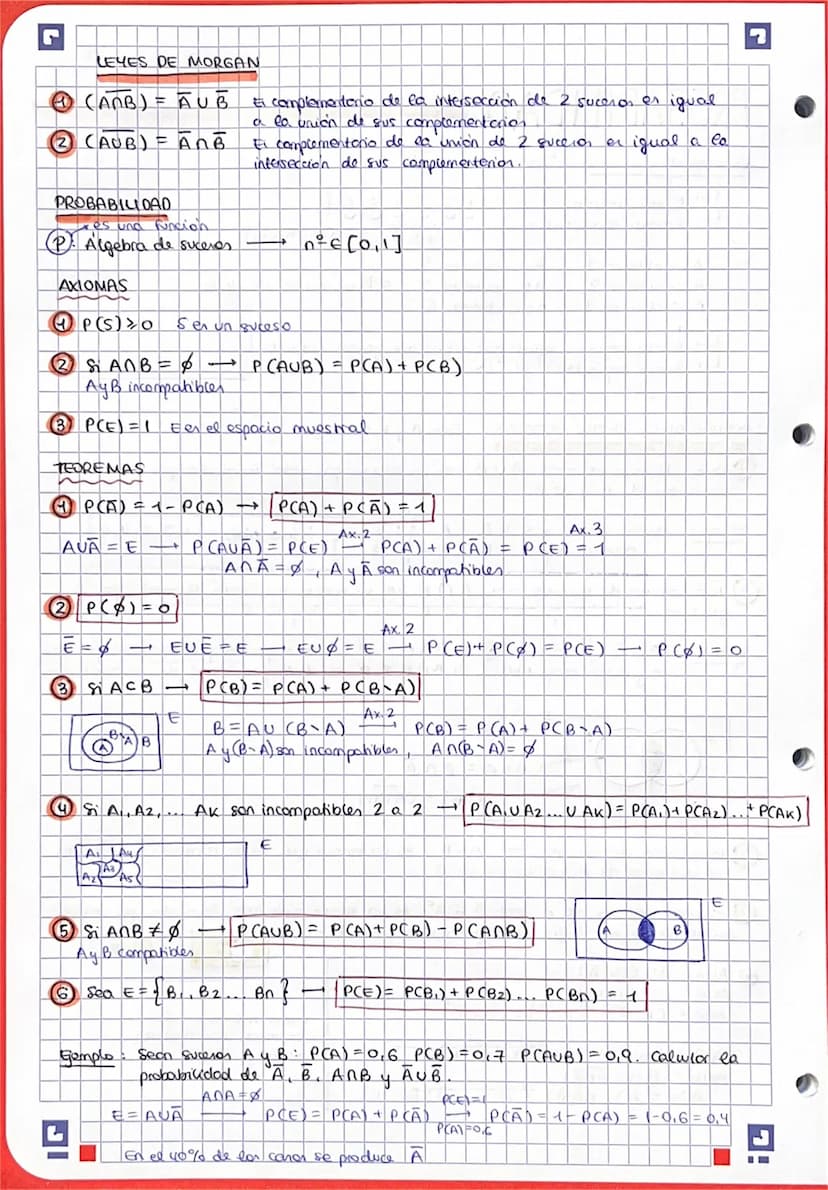 LEYES DE MORGAN
① (A̅∩̅B̅) = A̅ ∪ B̅ El complementario de la intersección de 2 sucesos es igual
a la unión de sus complementarios.
② (A̅∪̅B̅) = A̅ ∩ B̅ El complementario de la unión de 2 sucesos es igual a la
intersección de sus complementarios.
PROBABILIDAD
es una función
P: Álgebra de sucesos → nº ∈ [0,1]
AXIOMAS
① P(S) ≥ 0 S es un suceso
② Si A∩B = ∅ → P(A∪B) = P(A) + P(B)
A y B incompatibles
③ P(E) = 1 E es el espacio muestral
TEOREMAS
① P(A̅) = 1 - P(A) → P(A) + P(A̅) = 1
A∪A̅ = E → P(A∪A̅) = P(E) Ax.2 → P(A) + P(A̅) = P(E) = 1 Ax.3
A∩A̅ = ∅, A y A̅ son incompatibles
② P(∅) = 0
E̅ = ∅ → E∪E̅ = E → E∪∅ = E Ax.2 → P(E) + P(∅) = P(E) → P(∅) = 0
③ Si A⊂B → P(B) = P(A) + P(B∖A)
E
A B∖A B
B = A∪(B∖A) Ax.2 → P(B) = P(A) + P(B∖A)
A y (B∖A) son incompatibles, A∩(B∖A) = ∅
④ Si A₁, A₂, ... Ak son incompatibles 2 a 2 → P(A₁∪A₂...∪Ak) = P(A₁)+P(A₂)...+P(Ak)
E
A₁ A₄
A₂ A₃ A₅
E
A B
⑤ Si A∩B ≠ ∅ → P(A∪B) = P(A) + P(B) - P(A∩B)
A y B compatibles
⑥ Sea E = {B₁, B₂ ... Bn} → P(E) = P(B₁) + P(B₂)... P(Bn) = 1
Ejemplo: Sean sucesos A y B: P(A) = 0,6 P(B) = 0,7 P(A∪B) = 0,9. Calcular la
probabilidad de A̅, B̅, A∩B y A̅∪B̅.
A∩A = ∅ P(E)=1
E = A∪A̅ → P(E) = P(A) + P(A̅) → P(A̅) = 1 - P(A) = 1 - 0,6 = 0,4
P(A)=0,6
En el 40% de los casos se produce A̅